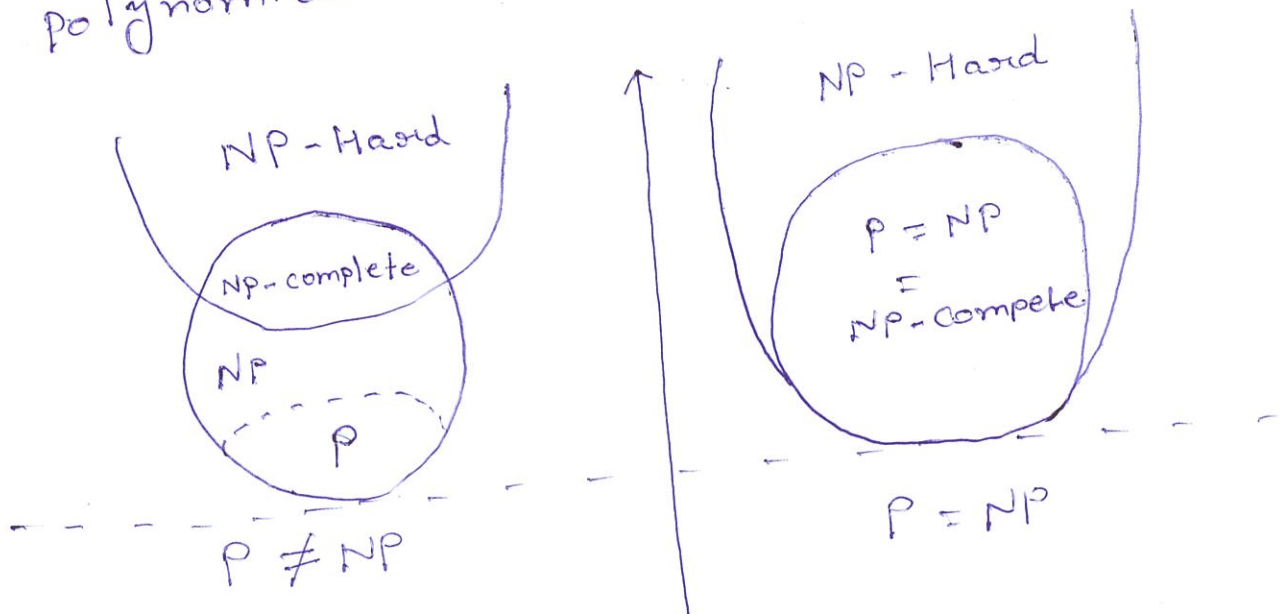 NP-Hard
NP-complete
NP
P
P ≠ NP
NP - Hard
P = NP
=
NP-Compete
P = NP